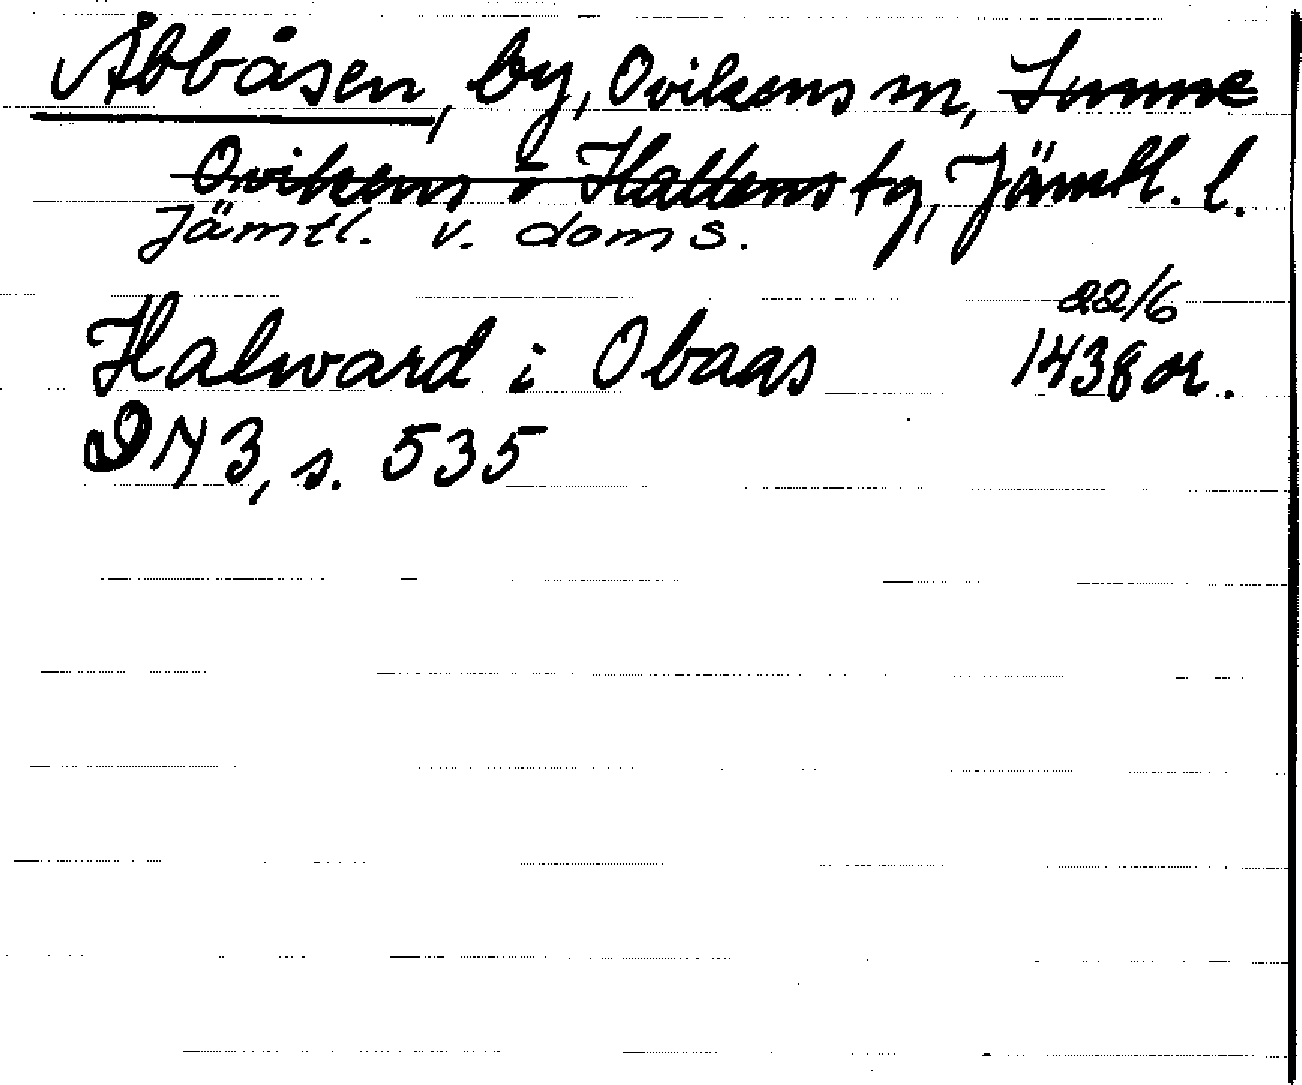 Åbbåsen, by, Ovikens sn, Sunne
Ovikens o Hallens tg, Jämtl. l.
Jämtl. v. doms.
22/6
Halward i Obaas 1438 or.
DN 3, s. 535